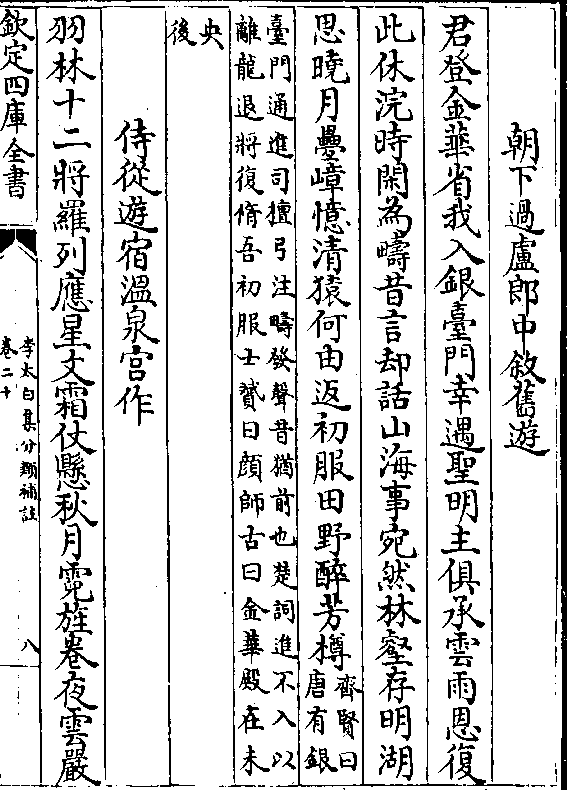 朝下過盧郎中敘舊遊
君登金華省我入銀臺門幸遇聖明主俱承雲雨恩復
此休浣時閑為疇昔言却話山海事宛然林壑存明湖
思曉月疊嶂憶清猿何由返初服田野醉芳樽齊賢曰唐有銀
臺門通進司擅弓注疇發聲昔猶前也楚詞進不入以
離龍退將復脩吾初服士贇曰顔師古曰金華殿在未
央
後
侍從遊宿溫泉宮作
羽林十二將羅列應星文霜仗懸秋月霓旌卷夜雲嚴
欽定四庫全書
李太白集分類補註
卷二十
八